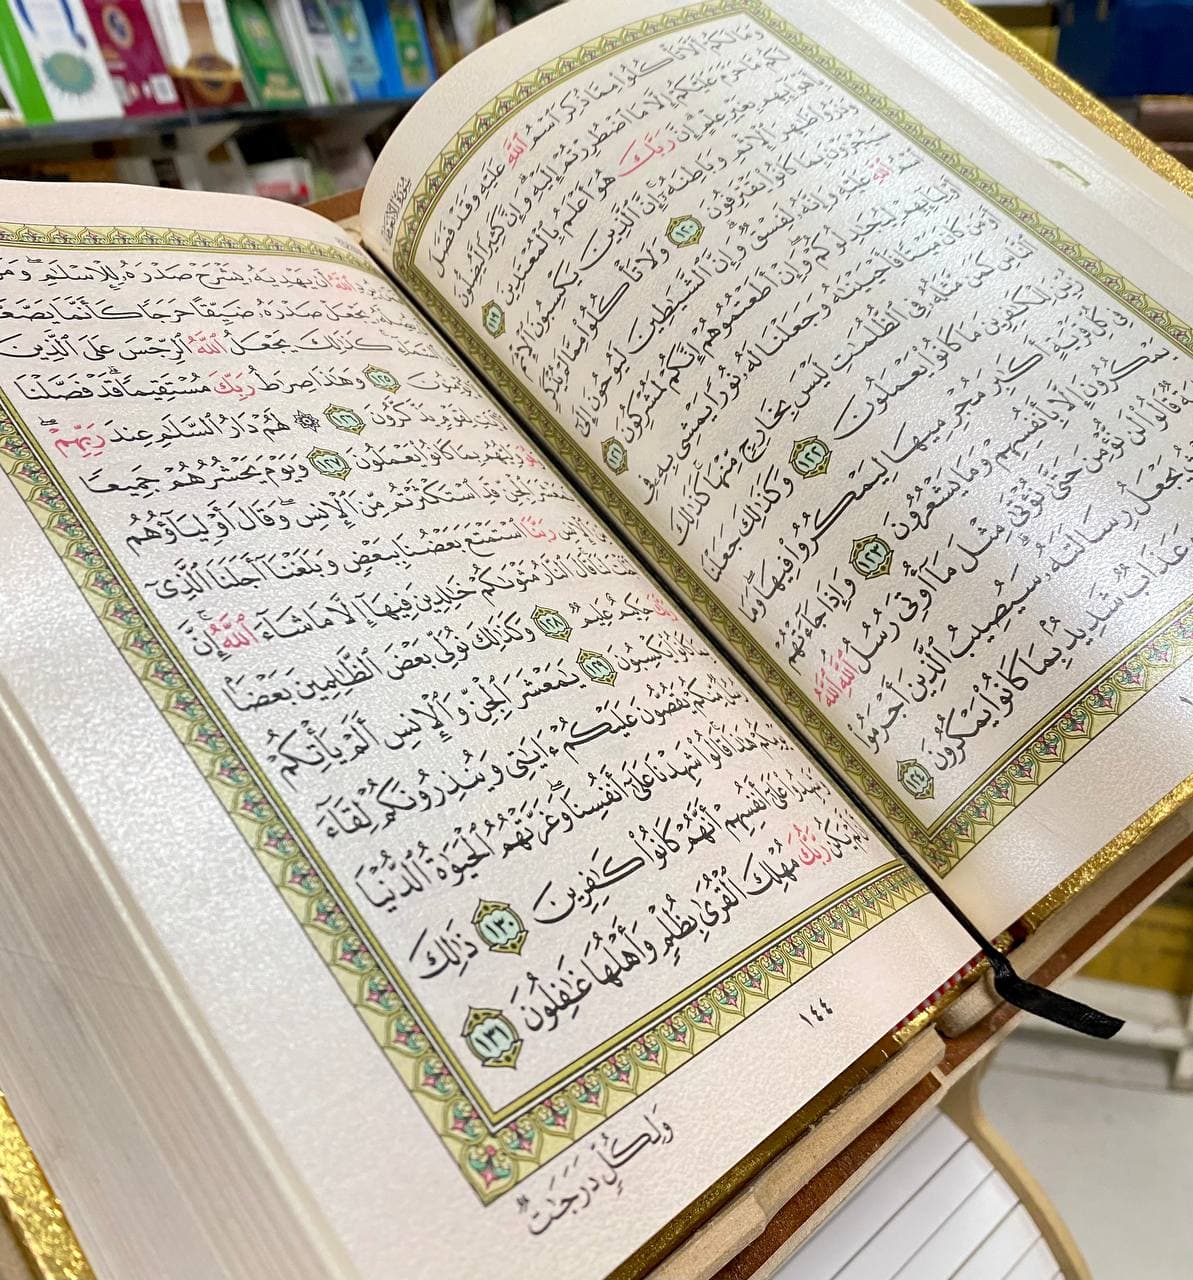 سُورَةُ الأَنْعَامِ
وَمَا لَكُمْ أَلَّا تَأْكُلُوا۟ مِمَّا ذُكِرَ ٱسْمُ ٱللَّهِ عَلَيْهِ وَقَدْ فَصَّلَ
لَكُم مَّا حَرَّمَ عَلَيْكُمْ إِلَّا مَا ٱضْطُرِرْتُمْ إِلَيْهِ ۗ وَإِنَّ كَثِيرًا لَّيُضِلُّونَ
بِأَهْوَآئِهِم بِغَيْرِ عِلْمٍ ۗ إِنَّ رَبَّكَ هُوَ أَعْلَمُ بِٱلْمُعْتَدِينَ ١١٩
وَذَرُوا۟ ظَٰهِرَ ٱلْإِثْمِ وَبَاطِنَهُۥٓ ۚ إِنَّ ٱلَّذِينَ يَكْسِبُونَ ٱلْإِثْمَ
سَيُجْزَوْنَ بِمَا كَانُوا۟ يَقْتَرِفُونَ ١٢٠ وَلَا تَأْكُلُوا۟ مِمَّا لَمْ يُذْكَرِ
ٱللَّهِ عَلَيْهِ وَإِنَّهُۥ لَفِسْقٌ ۗ وَإِنَّ ٱلشَّيَٰطِينَ لَيُوحُونَ إِلَىٰٓ
أَوْلِيَآئِهِمْ لِيُجَٰدِلُوكُمْ ۖ وَإِنْ أَطَعْتُمُوهُمْ إِنَّكُمْ لَمُشْرِكُونَ ١٢١
أَوَمَن كَانَ مَيْتًا فَأَحْيَيْنَٰهُ وَجَعَلْنَا لَهُۥ نُورًا يَمْشِى بِهِۦ فِى
ٱلنَّاسِ كَمَن مَّثَلُهُۥ فِى ٱلظُّلُمَٰتِ لَيْسَ بِخَارِجٍ مِّنْهَا ۚ كَذَٰلِكَ
زُيِّنَ لِلْكَٰفِرِينَ مَا كَانُوا۟ يَعْمَلُونَ ١٢٢ وَكَذَٰلِكَ جَعَلْنَا
فِى كُلِّ قَرْيَةٍ أَكَٰبِرَ مُجْرِمِيهَا لِيَمْكُرُوا۟ فِيهَا ۖ وَمَا
يَمْكُرُونَ إِلَّا بِأَنفُسِهِمْ وَمَا يَشْعُرُونَ ١٢٣ وَإِذَا جَآءَتْهُمْ
قَالُوا۟ لَن نُّؤْمِنَ حَتَّىٰ نُؤْتَىٰ مِثْلَ مَآ أُوتِىَ رُسُلُ ٱللَّهِ ۘ ٱللَّهُ
يَجْعَلُ رِسَالَتَهُۥ ۗ سَيُصِيبُ ٱلَّذِينَ أَجْرَمُوا۟
عَذَابٌ شَدِيدٌۢ بِمَا كَانُوا۟ يَمْكُرُونَ ١٢٤
ٱللَّهُ أَن يَهْدِيَهُۥ يَشْرَحْ صَدْرَهُۥ لِلْإِسْلَٰمِ ۖ وَمَن
يَجْعَلْ صَدْرَهُۥ ضَيِّقًا حَرَجًا كَأَنَّمَا يَصَّعَّدُ
ٱلسَّمَآءِ ۚ كَذَٰلِكَ يَجْعَلُ ٱللَّهُ ٱلرِّجْسَ عَلَى ٱلَّذِينَ
١٢٥ وَهَٰذَا صِرَٰطُ رَبِّكَ مُسْتَقِيمًا ۗ قَدْ فَصَّلْنَا
لِقَوْمٍ يَذَّكَّرُونَ ١٢٦ ۞ لَهُمْ دَارُ ٱلسَّلَٰمِ عِندَ رَبِّهِمْ ۖ
وَلِيُّهُم بِمَا كَانُوا۟ يَعْمَلُونَ ١٢٧ وَيَوْمَ يَحْشُرُهُمْ جَمِيعًا
ٱلْجِنِّ قَدِ ٱسْتَكْثَرْتُم مِّنَ ٱلْإِنسِ ۖ وَقَالَ أَوْلِيَآؤُهُم
ٱلْإِنسِ رَبَّنَا ٱسْتَمْتَعَ بَعْضُنَا بِبَعْضٍ وَبَلَغْنَآ أَجَلَنَا ٱلَّذِىٓ
لَنَا ۚ قَالَ ٱلنَّارُ مَثْوَىٰكُمْ خَٰلِدِينَ فِيهَآ إِلَّا مَا شَآءَ ٱللَّهُ ۗ إِنَّ
رَبَّكَ حَكِيمٌ عَلِيمٌ ١٢٨ وَكَذَٰلِكَ نُوَلِّى بَعْضَ ٱلظَّٰلِمِينَ بَعْضًۢا
كَانُوا۟ يَكْسِبُونَ ١٢٩ يَٰمَعْشَرَ ٱلْجِنِّ وَٱلْإِنسِ أَلَمْ يَأْتِكُمْ
مِّنكُمْ يَقُصُّونَ عَلَيْكُمْ ءَايَٰتِى وَيُنذِرُونَكُمْ لِقَآءَ
يَوْمِكُمْ هَٰذَا ۚ قَالُوا۟ شَهِدْنَا عَلَىٰٓ أَنفُسِنَا ۖ وَغَرَّتْهُمُ ٱلْحَيَوٰةُ ٱلدُّنْيَا
وَشَهِدُوا۟ عَلَىٰٓ أَنفُسِهِمْ أَنَّهُمْ كَانُوا۟ كَٰفِرِينَ ١٣٠ ذَٰلِكَ
أَن لَّمْ يَكُن رَّبُّكَ مُهْلِكَ ٱلْقُرَىٰ بِظُلْمٍ وَأَهْلُهَا غَٰفِلُونَ ١٣١
١٤٤
وَلِكُلٍّ دَرَجَٰتٌ